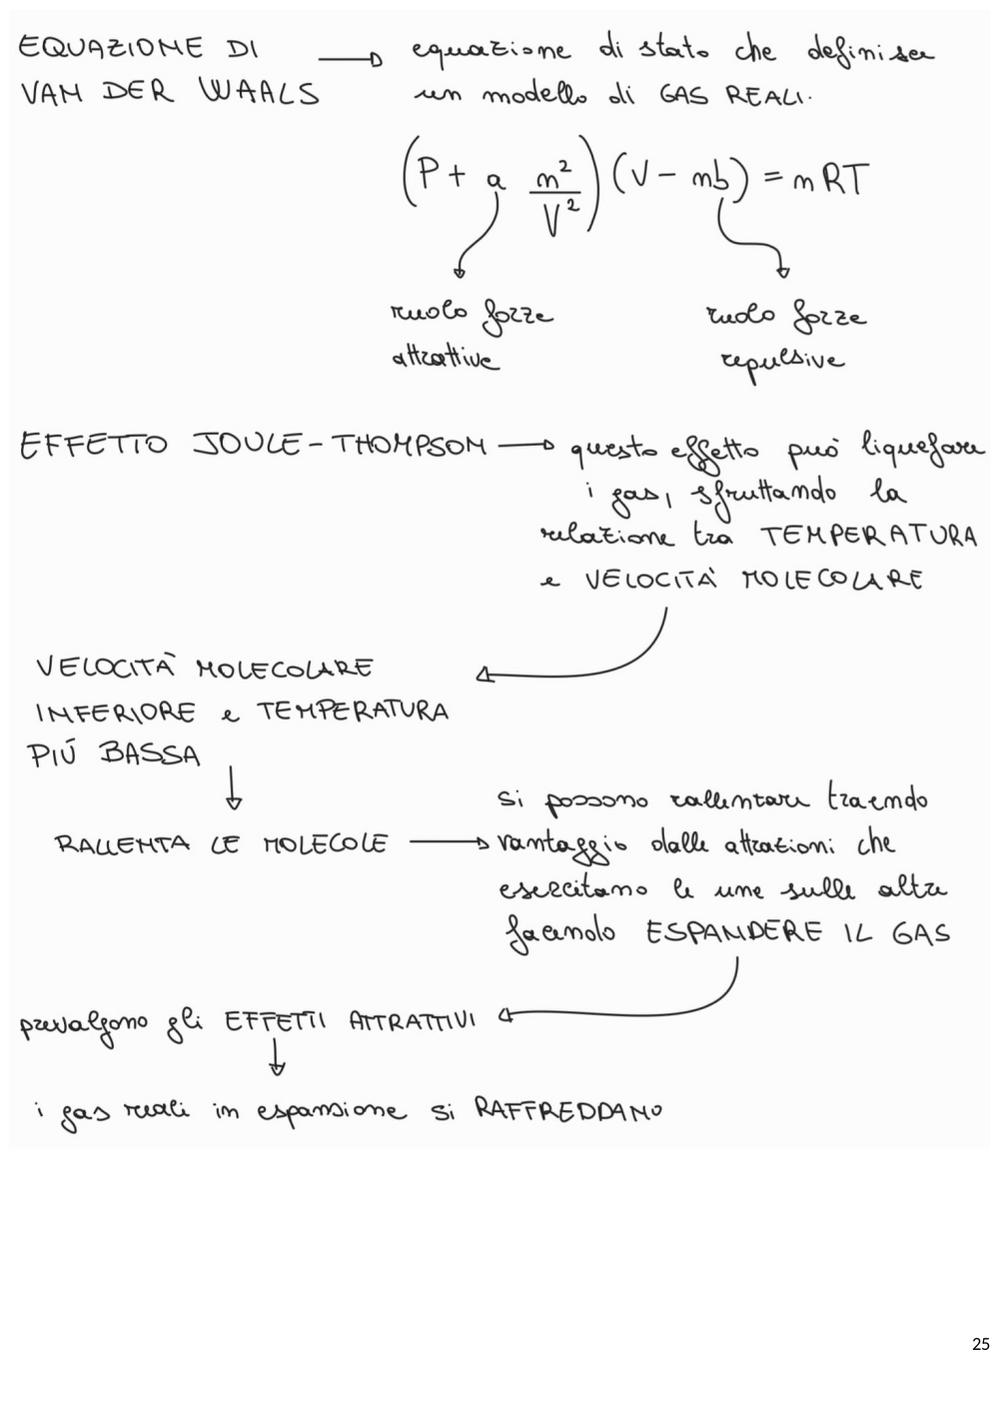 EQUAZIONE DI
VAN DER WAALS
equazione di stato che definisce
un modello di GAS REALI.
(P + a n²/V²) (V - nb) = nRT
ruolo forze
attrattive
ruolo forze
repulsive
EFFETTO JOULE-THOMPSON
questo effetto può liquefare
i gas, sfruttando la
relazione tra TEMPERATURA
e VELOCITÀ MOLECOLARE
VELOCITÀ MOLECOLARE
INFERIORE e TEMPERATURA
PIÚ BASSA
RALLENTA LE MOLECOLE
si possono rallentare traendo
vantaggio dalle attrazioni che
esercitano le une sulle altre
facendo ESPANDERE IL GAS
prevalgono gli EFFETTI ATTRATTIVI
i gas reali in espansione si RAFFREDDANO
25